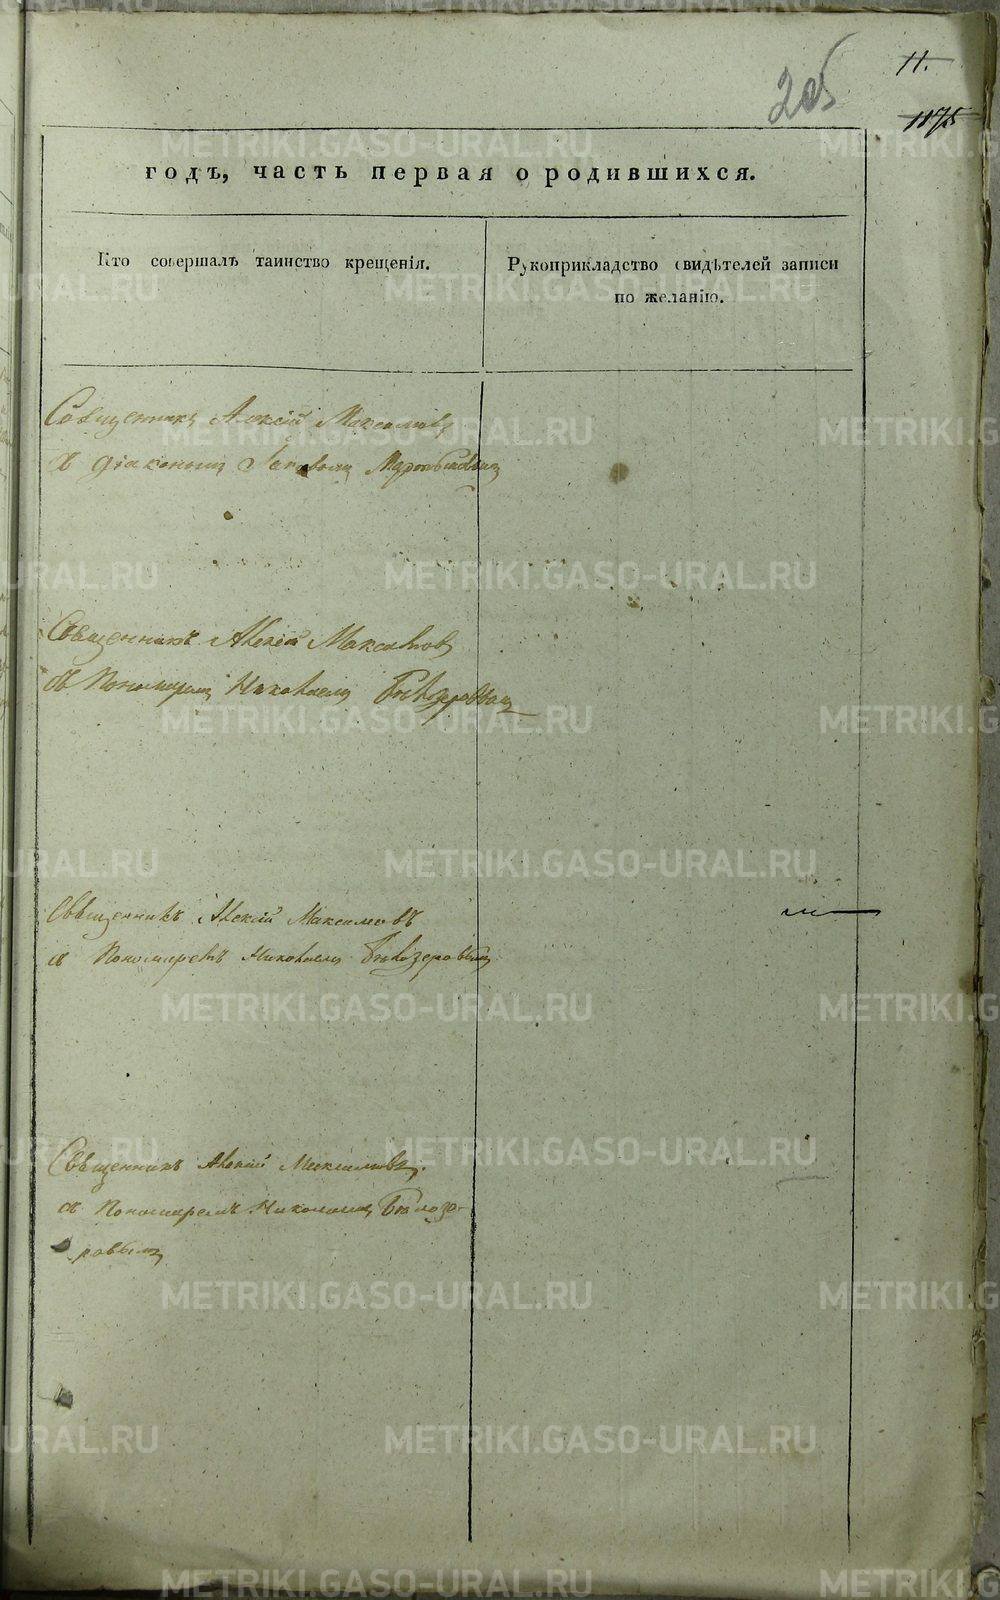 11.
1175
205
годъ, часть первая о родившихся.
Кто совершалъ таинство крещенія.
Рукоприкладство свидѣтелей записи
по желанію.
Священникъ Алексій Максимовъ
съ діакономъ
Священникъ Алексій Максимовъ
съ Пономаремъ Николаемъ Бѣлозеровымъ
Священникъ Алексій Максимовъ
съ Пономаремъ Николаемъ Бѣлозеровымъ
Священникъ Алексій Максимовъ.
съ Пономаремъ Николаемъ Бѣлозе-
ровымъ
METRIKI.GASO-URAL.RU